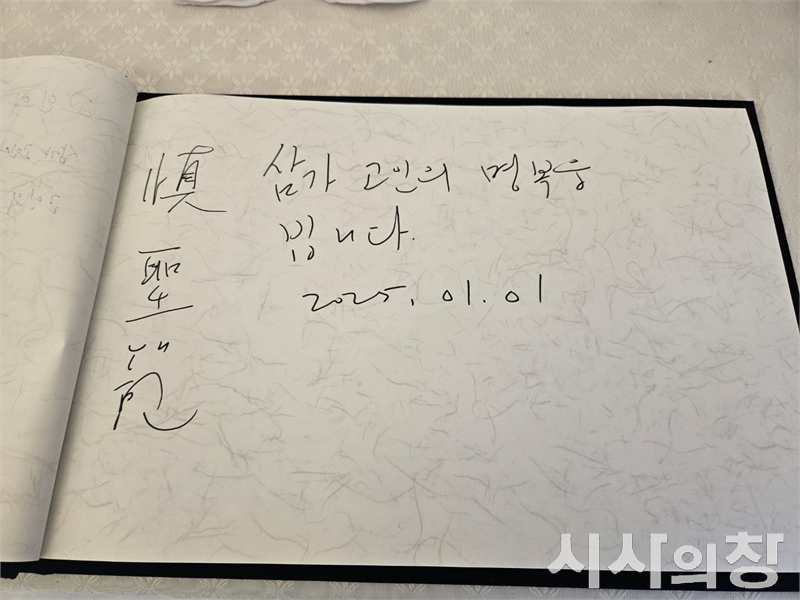 愼
聖
삼가 고인의 명복을
빕니다.
2025. 01. 01
시사의창